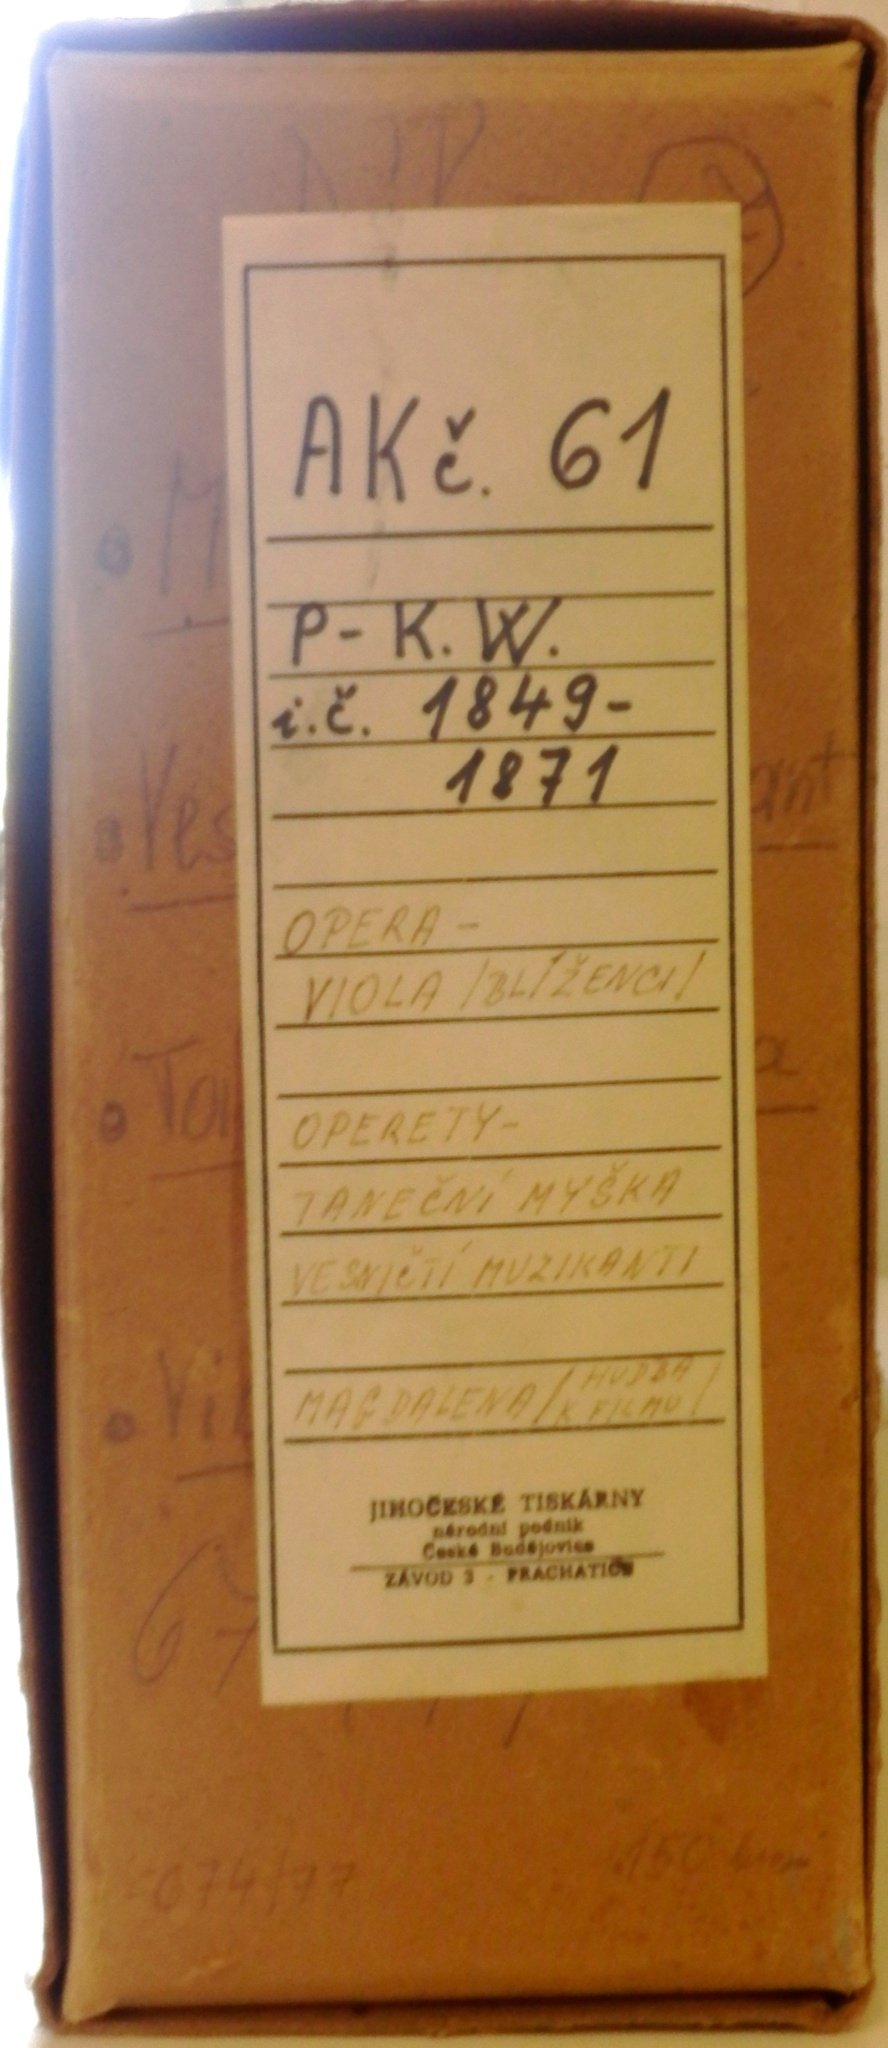 AK č. 61
P- K. W.
i.č. 1849-
1871
OPERA -
VIOLA /BLÍŽENCI/
OPERETY-
TANEČNÍ MYŠKA
VESNIČTÍ MUZIKANTI
MAGDALENA / HUDBA
K FILMU /
JIHOČESKÉ TISKÁRNY
národní podnik
České Budějovice
ZÁVOD 3 - PRACHATICE
674/77